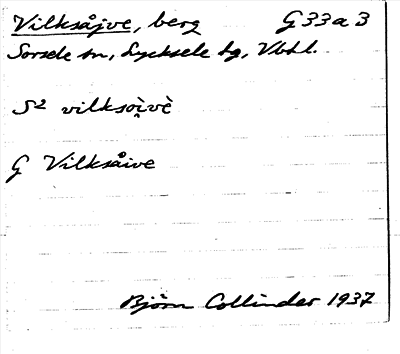 Vilksåjve, berg G 33 a 3
Sorsele sn, Lycksele lg, Vbtl.
S² vilksòi̭vè
G Vilksåive
Björn Collinder 1937